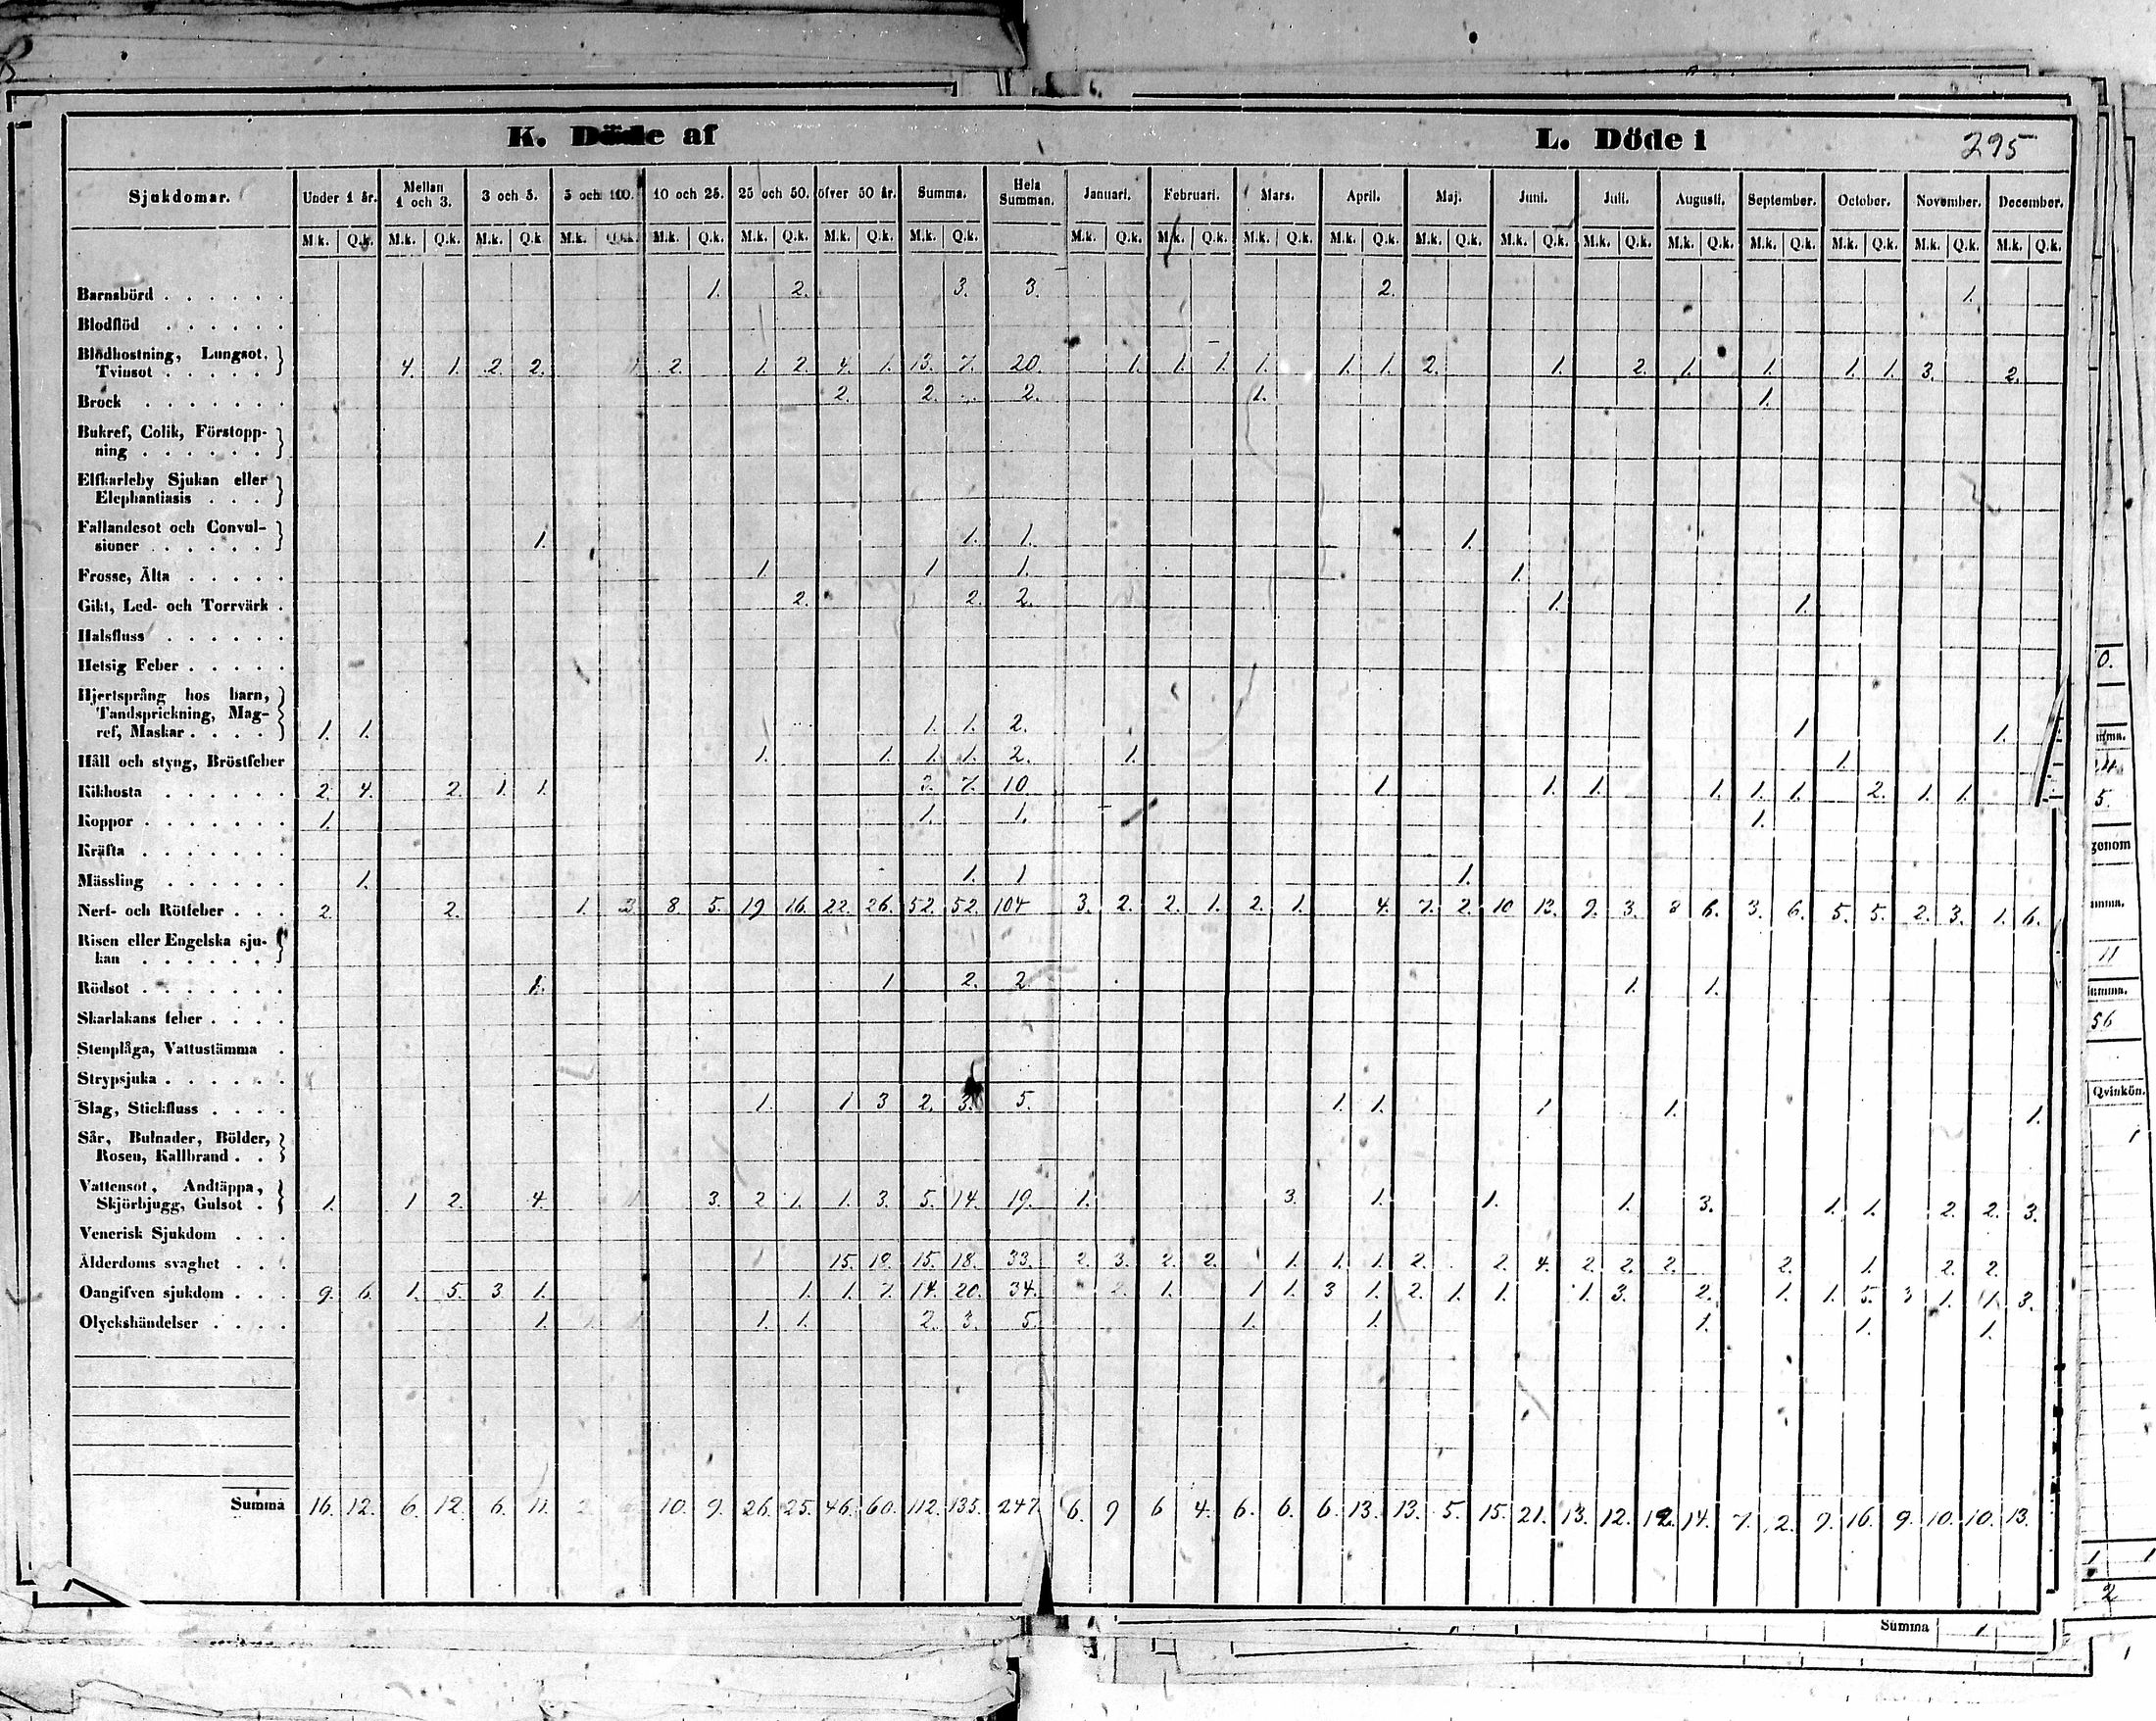 K. Döde af
L. Döde i 295
Sjukdomar. Under 1 år. Mellan 1 och 3. 3 och 5. 5 och 10. 10 och 25. 25 och 50. öfver 50 år. Summa. Hela Summan. Januari. Februari. Mars. April. Maj. Juni. Juli. Augusti. September. October. November. December.
M.k. Q.k. M.k. Q.k. M.k. Q.k. M.k. Q.k. M.k. Q.k. M.k. Q.k. M.k. Q.k. M.k. Q.k. M.k. Q.k. M.k. Q.k. M.k. Q.k. M.k. Q.k. M.k. Q.k. M.k. Q.k. M.k. Q.k. M.k. Q.k. M.k. Q.k. M.k. Q.k. M.k. Q.k. M.k. Q.k.
Barnsbörd . . . . . . 1. 2. 3. 3. 2. 1.
Blodflöd . . . . . .
Blodhostning, Lungsot,
Tvinsot . . . . . 4. 1. 2. 2. 1 2. 1. 2. 4. 1. 13. 7. 20. 1. 1. 1. 1. 1. 1. 2. 1. 2. 1. 1. 1. 1. 3. 2.
Brock . . . . . . . 2. 2. 2. 1. 1.
Bukref, Colik, Förstopp-
ning . . . . . .
Elfkarleby Sjukan eller
Elephantiasis . . .
Fallandesot och Convul-
sioner . . . . . 1. 1. 1. 1.
Frosse, Älta . . . . . 1. 1 1. 1.
Gikt, Led- och Torrvärk . 2. 2. 2. 1. 1.
Halsfluss . . . . . .
Hetsig Feber . . . . .
Hjertsprång hos barn,
Tandsprickning, Mag-
ref, Maskar . . . . 1. 1. 1. 1. 2. 1. 1.
Håll och styng, Bröstfeber 1. 1. 1. 1. 2. 1. 1.
Kikhosta . . . . . . 2. 4. 2. 1. 1. 3. 7. 10 1. 1. 1. 1. 1. 1. 2. 1. 1.
Koppor . . . . . . . 1. 1. 1. 1.
Kräfta . . . . . . .
Mässling . . . . . . 1. 1. 1 1.
Nerf- och Rötfeber . . . 2. 2. 1. 3. 8. 5. 19 16. 22. 26. 52. 52. 104 3. 2. 2. 1. 2. 1. 4. 7. 2. 10 12. 9. 3. 8 6. 3. 6. 5. 5. 2. 3. 1. 6.
Risen eller Engelska sju-
kan . . . . . .
Rödsot . . . . . . . 1. 1 2. 2 1. 1.
Skarlakans feber . . . .
Stenplåga, Vattustämma .
Strypsjuka . . . . . .
Slag, Stickfluss . . . . 1. 1 3 2. 3. 5. 1. 1. 1 1. 1.
Sår, Bulnader, Bölder,
Rosen, Kallbrand . .
Vattensot, Andtäppa,
Skjörbjugg, Gulsot . 1. 1 2. 4. 1 3. 2 1. 1. 3. 5. 14. 19. 1. 3. 1. 1. 1. 3. 1. 1. 2. 2. 3.
Venerisk Sjukdom . . .
Ålderdoms svaghet . . . 15. 18. 15. 18. 33. 2. 3. 2. 2. 1. 1. 1. 2. 2. 4. 2. 2. 2. 2. 1. 2. 2.
Oangifven sjukdom . . . 9. 6. 1. 5. 3. 1. 1. 1. 7. 14. 20. 34. 2. 1. 1 1. 3 1. 2. 1. 1. 1. 3. 2. 1. 1. 5. 3 1. 1. 3.
Olyckshändelser . . . . 1. 1 1 1. 1. 2. 3. 5. 1. 1. 1. 1. 1.
Summa 16. 12. 6. 12. 6. 11. 2 10. 9. 26. 25. 46. 60. 112. 135. 247. 6. 9 6 4. 6. 6. 6. 13. 13. 5. 15. 21. 13. 12. 12. 14. 7. 2. 9. 16. 9. 10. 10. 13.
0.
5.
genom
11
56
Qvinkön.
1
2
Summa 1